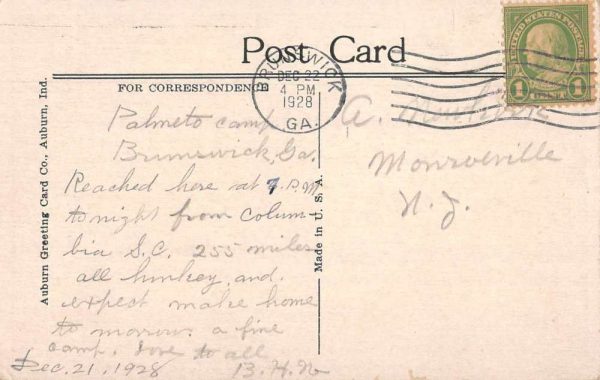 Post Card
FOR CORRESPONDENCE
BRUNSWICK
DEC 22
4 PM
1928
GA.
UNITED STATES POSTAGE
1 1
Auburn Greeting Card Co., Auburn, Ind.
Made in U. S. A.
Palmeto camp
Brunswick, Ga.
Reached here at 7 P.M
to night from Colum-
bia S.C. 255 miles
all hunkey, and
expect make home
to morrow. a fine
camp. Love to all
Dec. 21, 1928 B.H.N
A.
Monroeville
N.J.